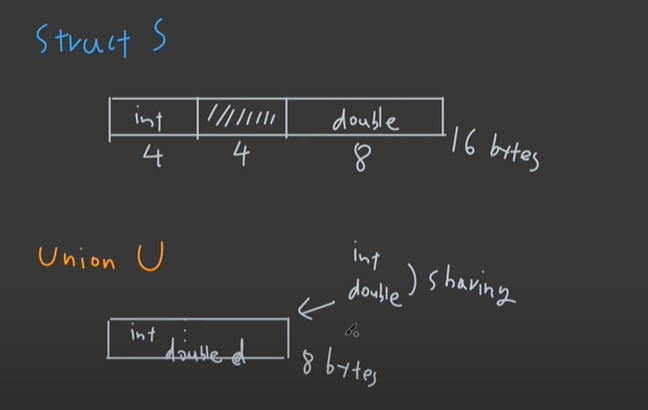 Struct S
int //////// double
4 4 8 16 bytes
Union U
int
double ) sharing
int
double d
8 bytes